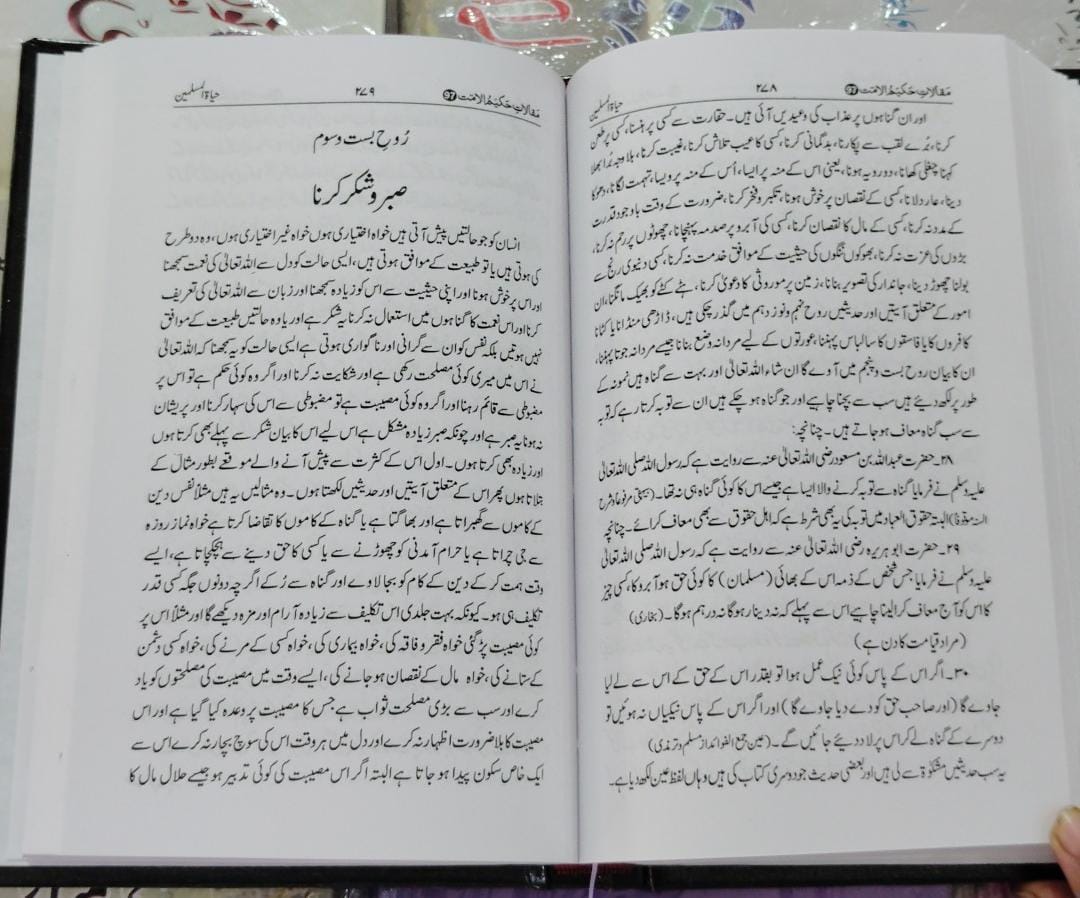 مقالاتِ حکیمُ الامت 97
۲۷۸
حیاۃ المسلمین
اور ان گناہوں پر عذاب کی وعیدیں آئی ہیں۔ حقارت سے کسی پر ہنسنا، کسی پر طعن
کرنا، بُرے لقب سے پکارنا، بدگمانی کرنا، کسی کا عیب تلاش کرنا، غیبت کرنا، بلا وجہ بُرا بھلا
کہنا چغلی کھانا، دوروبہ ہونا، یعنی اس کے منہ پر ایسا، اُس کے منہ پر ویسا، تہمت لگانا، دھوکا
دینا، عار دلانا، کسی کے نقصان پر خوش ہونا، تکبر و فخر کرنا، ضرورت کے وقت باوجود قدرت
کے مدد نہ کرنا، کسی کے مال کا نقصان کرنا، کسی کی آبرو پر صدمہ پہنچانا، چھوٹوں پر رحم نہ کرنا،
بڑوں کی عزت نہ کرنا، بھوکوں ننگوں کی حیثیت کے موافق خدمت نہ کرنا، کسی دنیوی رنج سے
بولنا چھوڑ دینا، جاندار کی تصویر بنانا، زمین پر موروثی کا دعویٰ کرنا، ہٹے کٹے کو بھیک مانگنا، ان
امور کے متعلق آیتیں اور حدیثیں روح نہم و نوز دہم میں گذر چکی ہیں، ڈاڑھی منڈانا یا کٹانا
کافروں کا یا فاسقوں کا سا لباس پہننا، عورتوں کے لیے مردانہ وضع بنانا جیسے مردانہ جوتا پہننا،
ان کا بیان روح بست و پنجم میں آوے گا ان شاء اللہ تعالیٰ اور بہت سے گناہ ہیں نمونہ کے
طور پر لکھ دیئے ہیں سب سے بچنا چاہیے اور جو گناہ ہو چکے ہیں ان سے توبہ کرتا رہے کہ توبہ
سے سب گناہ معاف ہو جاتے ہیں۔ چنانچہ:
۲۸۔ حضرت عبداللہ بن مسعود رضی اللہ تعالیٰ عنہ سے روایت ہے کہ رسول اللہ صلی اللہ تعالیٰ
علیہ وسلم نے فرمایا گناہ سے توبہ کرنے والا ایسا ہے جیسے اس کا کوئی گناہ ہی نہ تھا۔ (بیہقی مرفوعاً و شرح
السنہ موقوفا) البتہ حقوق العباد میں توبہ کی یہ بھی شرط ہے کہ اہل حقوق سے بھی معاف کرائے۔ چنانچہ
۲۹۔ حضرت ابو ہریرہ رضی اللہ تعالیٰ عنہ سے روایت ہے کہ رسول اللہ صلی اللہ تعالیٰ
علیہ وسلم نے فرمایا جس شخص کے ذمہ اس کے بھائی (مسلمان) کا کوئی حق ہو آبرو کا، کسی چیز
کا اس کو آج معاف کرا لینا چاہیے اس سے پہلے کہ نہ دینار ہو گا نہ درہم ہو گا۔ (بخاری)
(مراد قیامت کا دن ہے)
۳۰۔ اگر اس کے پاس کوئی نیک عمل ہوا تو بقدر اس کے حق کے اس سے لے لیا
جاوے گا (اور صاحب حق کو دے دیا جاوے گا) اور اگر اس کے پاس نیکیاں نہ ہوئیں تو
دوسرے کے گناہ لے کر اس پر لاد دیئے جائیں گے۔ (عین جمع الفوائد از مسلم و ترمذی)
یہ سب حدیثیں مشکوٰۃ سے لی ہیں اور بعضی حدیث جو دوسری کتاب کی ہیں وہاں لفظ عین لکھ دیا ہے۔
مقالاتِ حکیمُ الامت 97
۲۷۹
حیاۃ المسلمین
رُوحِ بست و سوم
صبر و شکر کرنا
انسان کو جو حالتیں پیش آتی ہیں خواہ اختیاری ہوں خواہ غیر اختیاری ہوں، وہ دو طرح
کی ہوتی ہیں یا تو طبیعت کے موافق ہوتی ہیں، ایسی حالت کو دل سے اللہ تعالیٰ کی نعمت سمجھنا
اور اس پر خوش ہونا اور اپنی حیثیت سے اس کو زیادہ سمجھنا اور زبان سے اللہ تعالیٰ کی تعریف
کرنا اور اس نعمت کا گناہوں میں استعمال نہ کرنا یہ شکر ہے اور یا وہ حالتیں طبیعت کے موافق
نہیں ہوتیں بلکہ نفس کو ان سے گرانی اور ناگواری ہوتی ہے ایسی حالت کو یہ سمجھنا کہ اللہ تعالیٰ
نے اس میں میری کوئی مصلحت رکھی ہے اور شکایت نہ کرنا اور اگر وہ کوئی حکم ہے تو اس پر
مضبوطی سے قائم رہنا اور اگر وہ کوئی مصیبت ہے تو مضبوطی سے اس کی سہار کرنا اور پریشان
نہ ہونا یہ صبر ہے اور چونکہ صبر زیادہ مشکل ہے اس لیے اس کا بیان شکر سے پہلے بھی کرتا ہوں
اور زیادہ بھی کرتا ہوں۔ اول اس کے کثرت سے پیش آنے والے موقعے بطور مثال کے
بتلاتا ہوں پھر اس کے متعلق آیتیں اور حدیثیں لکھتا ہوں۔ وہ مثالیں یہ ہیں مثلاً نفس دین
کے کاموں سے گھبراتا ہے اور بھاگتا ہے یا گناہ کے کاموں کا تقاضا کرتا ہے خواہ نماز روزہ
سے جی چراتا ہے یا حرام آمدنی کو چھوڑنے سے یا کسی کا حق دینے سے ہچکچاتا ہے، ایسے
وقت ہمت کر کے دین کے کام کو بجا لاوے اور گناہ سے رُکے اگرچہ دونوں جگہ کسی قدر
تکلیف ہی ہو۔ کیونکہ بہت جلدی اس تکلیف سے زیادہ آرام اور مزہ دیکھے گا اور مثلاً اس پر
کوئی مصیبت پڑ گئی خواہ فقر و فاقہ کی، خواہ بیماری کی، خواہ کسی کے مرنے کی، خواہ کسی دشمن
کے ستانے کی، خواہ مال کے نقصان ہو جانے کی، ایسے وقت میں مصیبت کی مصلحتوں کو یاد
کرے اور سب سے بڑی مصلحت ثواب ہے جس کا مصیبت پر وعدہ کیا گیا ہے اور اس
مصیبت کا بلا ضرورت اظہار نہ کرے اور دل میں ہر وقت اس کی سوچ بچار نہ کرے اس سے
ایک خاص سکون پیدا ہو جاتا ہے البتہ اگر اس مصیبت کی کوئی تدبیر ہو جیسے حلال مال کا